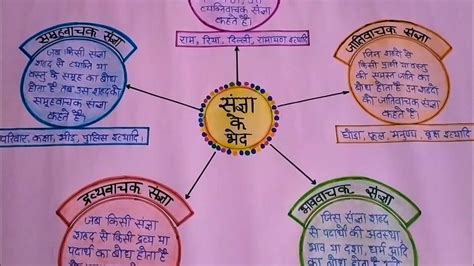 व्यक्तिवाचक संज्ञा
कहते हैं।
राम, रिया, दिल्ली, रामायण इत्यादि
समूहवाचक संज्ञा
जब किसी संज्ञा
शब्द से व्यक्ति या
वस्तु के समूह का बोध
होता है तब उस शब्द को
समूहवाचक संज्ञा
कहते हैं।
परिवार, कक्षा, भीड़, पुलिस इत्यादि।
जातिवाचक संज्ञा
जिन शब्दों से
किसी प्राणी या वस्तु
की समस्त जाति का
बोध होता है उन शब्दों
को जातिवाचक संज्ञा
कहते हैं।
घोड़ा, फूल, मनुष्य, वृक्ष इत्यादि
संज्ञा
के
भेद
द्रव्यवाचक संज्ञा
जब किसी संज्ञा
शब्द से किसी द्रव्य या
पदार्थ का बोध होता है
भाववाचक संज्ञा
जिस संज्ञा शब्द
से पदार्थों की अवस्था,
भाव या दशा, धर्म आदि
का बोध होता है